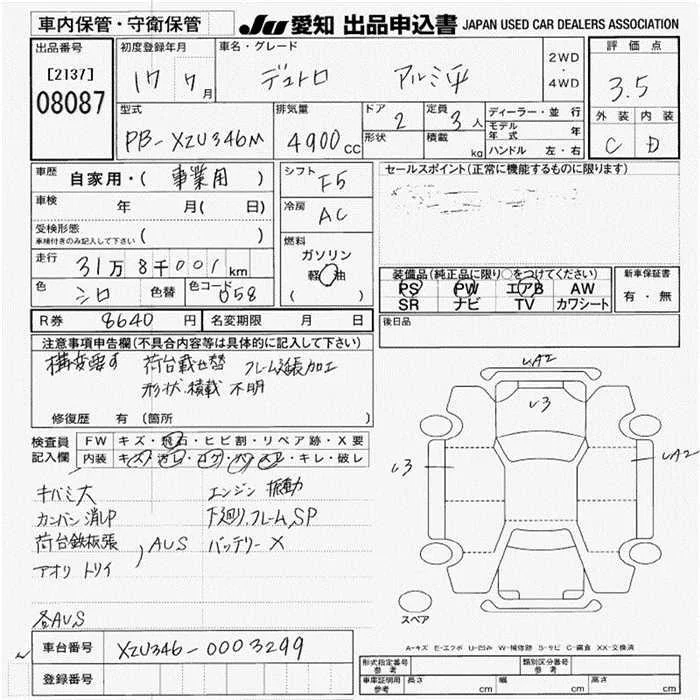 車内保管・守衛保管 JU 愛知 出品申込書 JAPAN USED CAR DEALERS ASSOCIATION
出品番号 初度登録年月 車名・グレード 2WD ・ 4WD 評価点
[2137] 17 7月 デュトロ アルミ平 3.5
08087 型式 排気量 ドア 定員 ディーラー・並行 外装 内装
PB-XZU346M 4900cc 2 3人 モデル年式 年 C D
形状 積載 kg ハンドル 左・右
車歴 自家用・( 事業用 ) シフト F5 セールスポイント(正常に機能するものに限ります)
車検 年 月( 日) 冷房 AC
受検形態 車検付きのみ記入して下さい ( )
燃料 ガソリン 軽油 ( )
走行 31万8千001km
装備品(純正品に限り○をつけてください) 新車保証書
色 シロ 色替 色コード 058 PS PW エアB AW 有・無
SR ナビ TV カワシート
R券 8640円 名変期限 月 日 後日品
注意事項申告欄(不具合内容等は具体的に記入して下さい)
構変要す 荷台載せ替 フレーム延長加工
形状・積載 不明
修復歴 有 (箇所 )
検査員記入欄 FW キズ・飛石・ヒビ割・リペア跡・X要
内装 キズ・ヨゴレ・コゲ・穴・スレ・キレ・破レ
キバミ大 エンジン振動
カンバン消しP 下廻り,フレーム,SP
荷台鉄板張 , AUS バッテリーX
アオリトリイ
各AUS
UA2
U3
U3 UA2
スペア
A-キズ E-エクボ U-凹み W-補修跡 S-サビ C-腐食 XX-交換済
車台番号 XZU346-0003299
登録番号
形式指定番号 参考 類別区分番号 参考
車庫証明用 参考 長さ cm 幅 cm 高さ cm